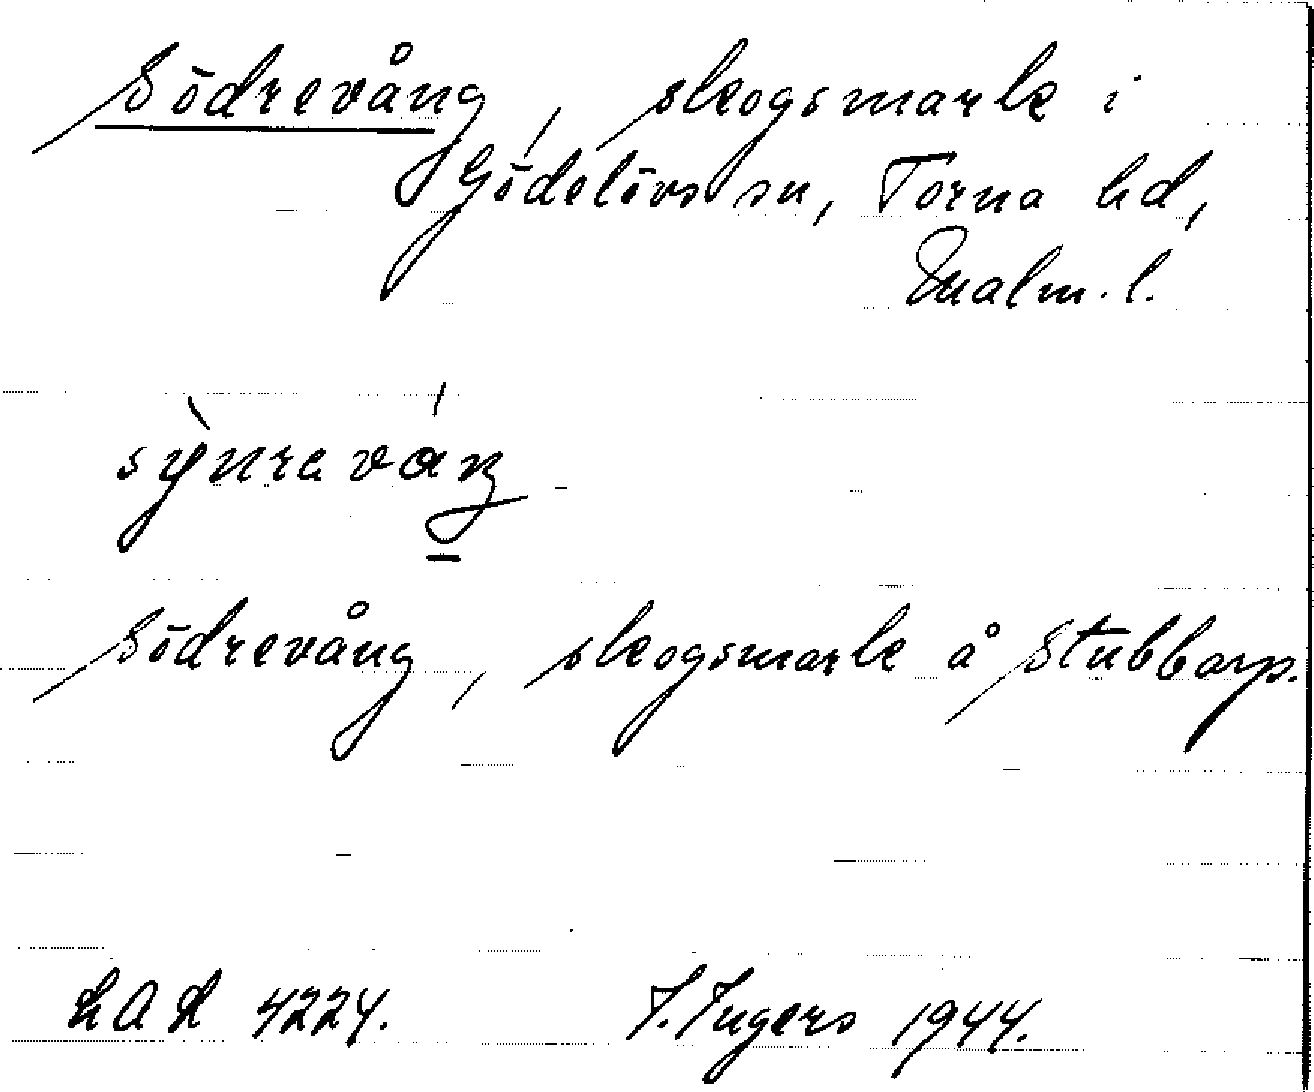 Södrevång, skogsmark i
Gödelövs sn, Torna hd,
Malm. l.
sỳnra váŋ
Södrevång, skogsmark å Stubbarp.
LAL 4224. I. Ingers 1944.